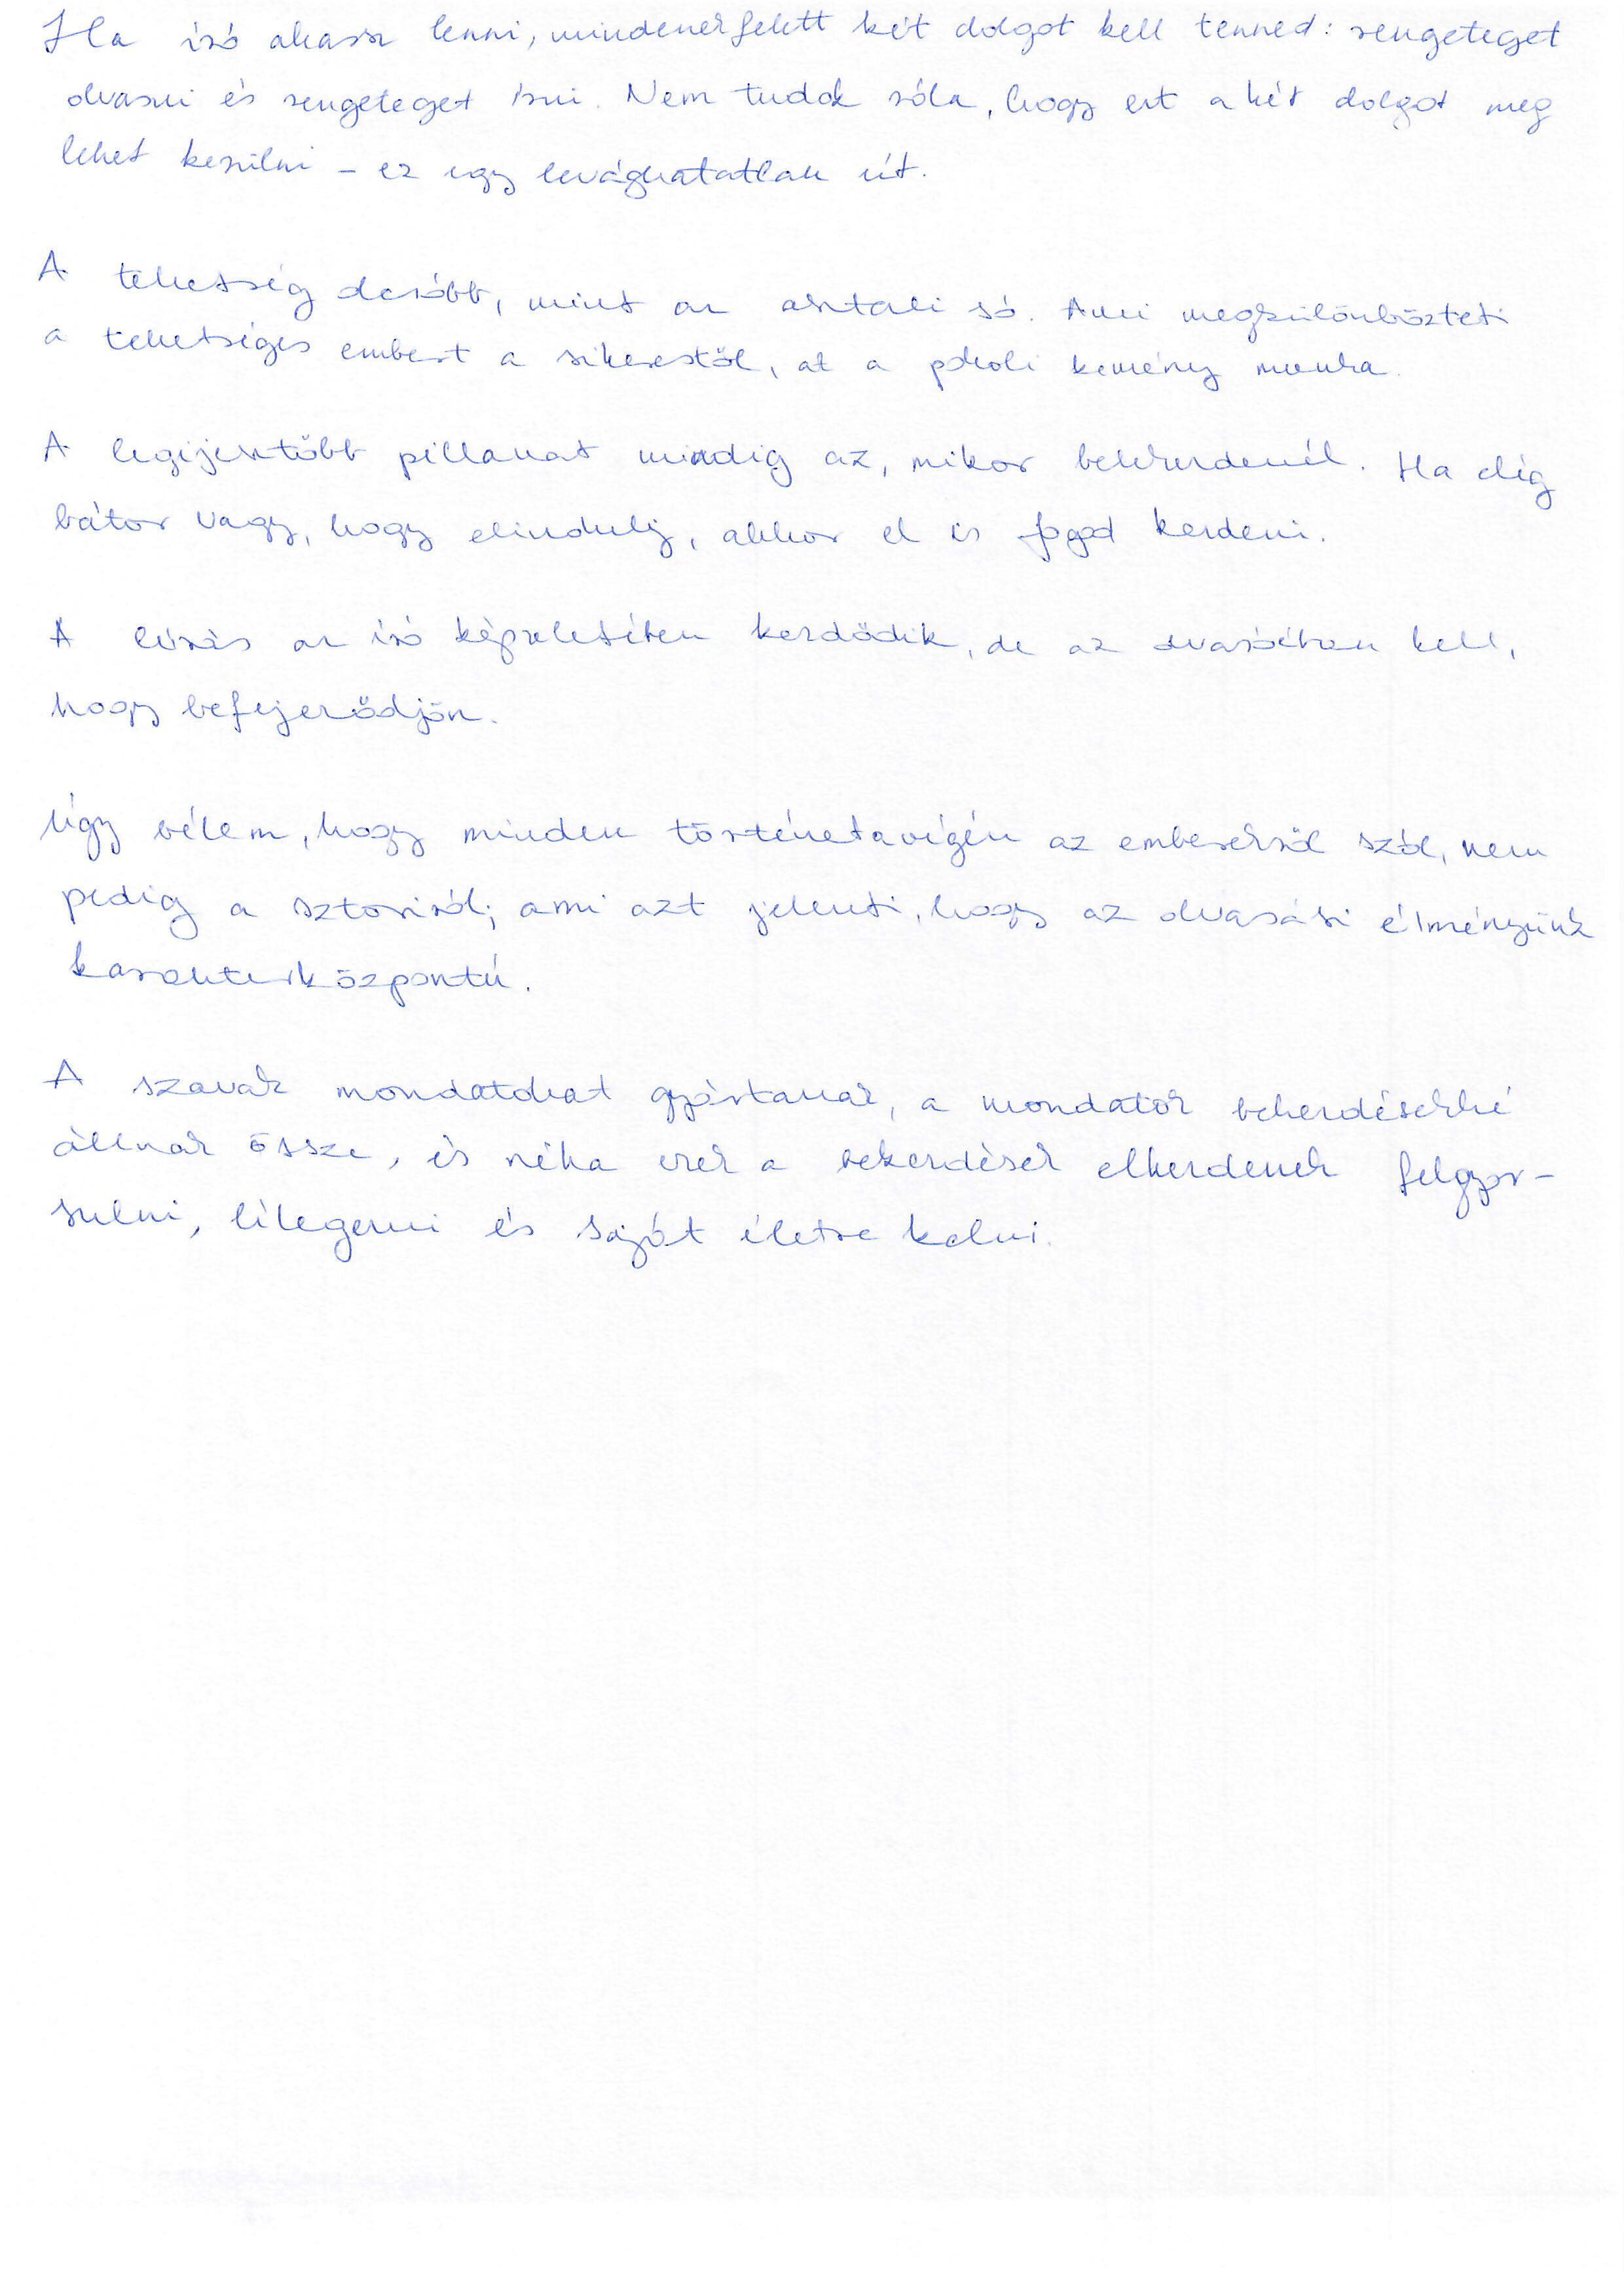 Ha író akarsz lenni, mindenekfelett két dolgot kell tenned: rengeteget
olvasni és rengeteget írni. Nem tudok róla, hogy ezt a két dolgot meg
lehet kerülni – ez egy levághatatlan út.
A tehetség olcsóbb, mint az asztali só. Ami megkülönbözteti
a tehetséges embert a sikerestől, az a pokoli kemény munka.
A legijesztőbb pillanat mindig az, mikor belekezdenél. Ha elég
bátor vagy, hogy elindulj, akkor el is fogod kezdeni.
A leírás az író képzeletében kezdődik, de az olvasóéban kell,
hogy befejeződjön.
Úgy vélem, hogy minden történet a végén az emberekről szól, nem
pedig a sztoriról; ami azt jelenti, hogy az olvasási élményünk
karakterközpontú.
A szavak mondatokat gyártanak, a mondatok bekezdésekké
állnak össze, és néha ezek a bekezdések elkezdenek felgyor-
sulni, lélegezni és saját életre kelni.